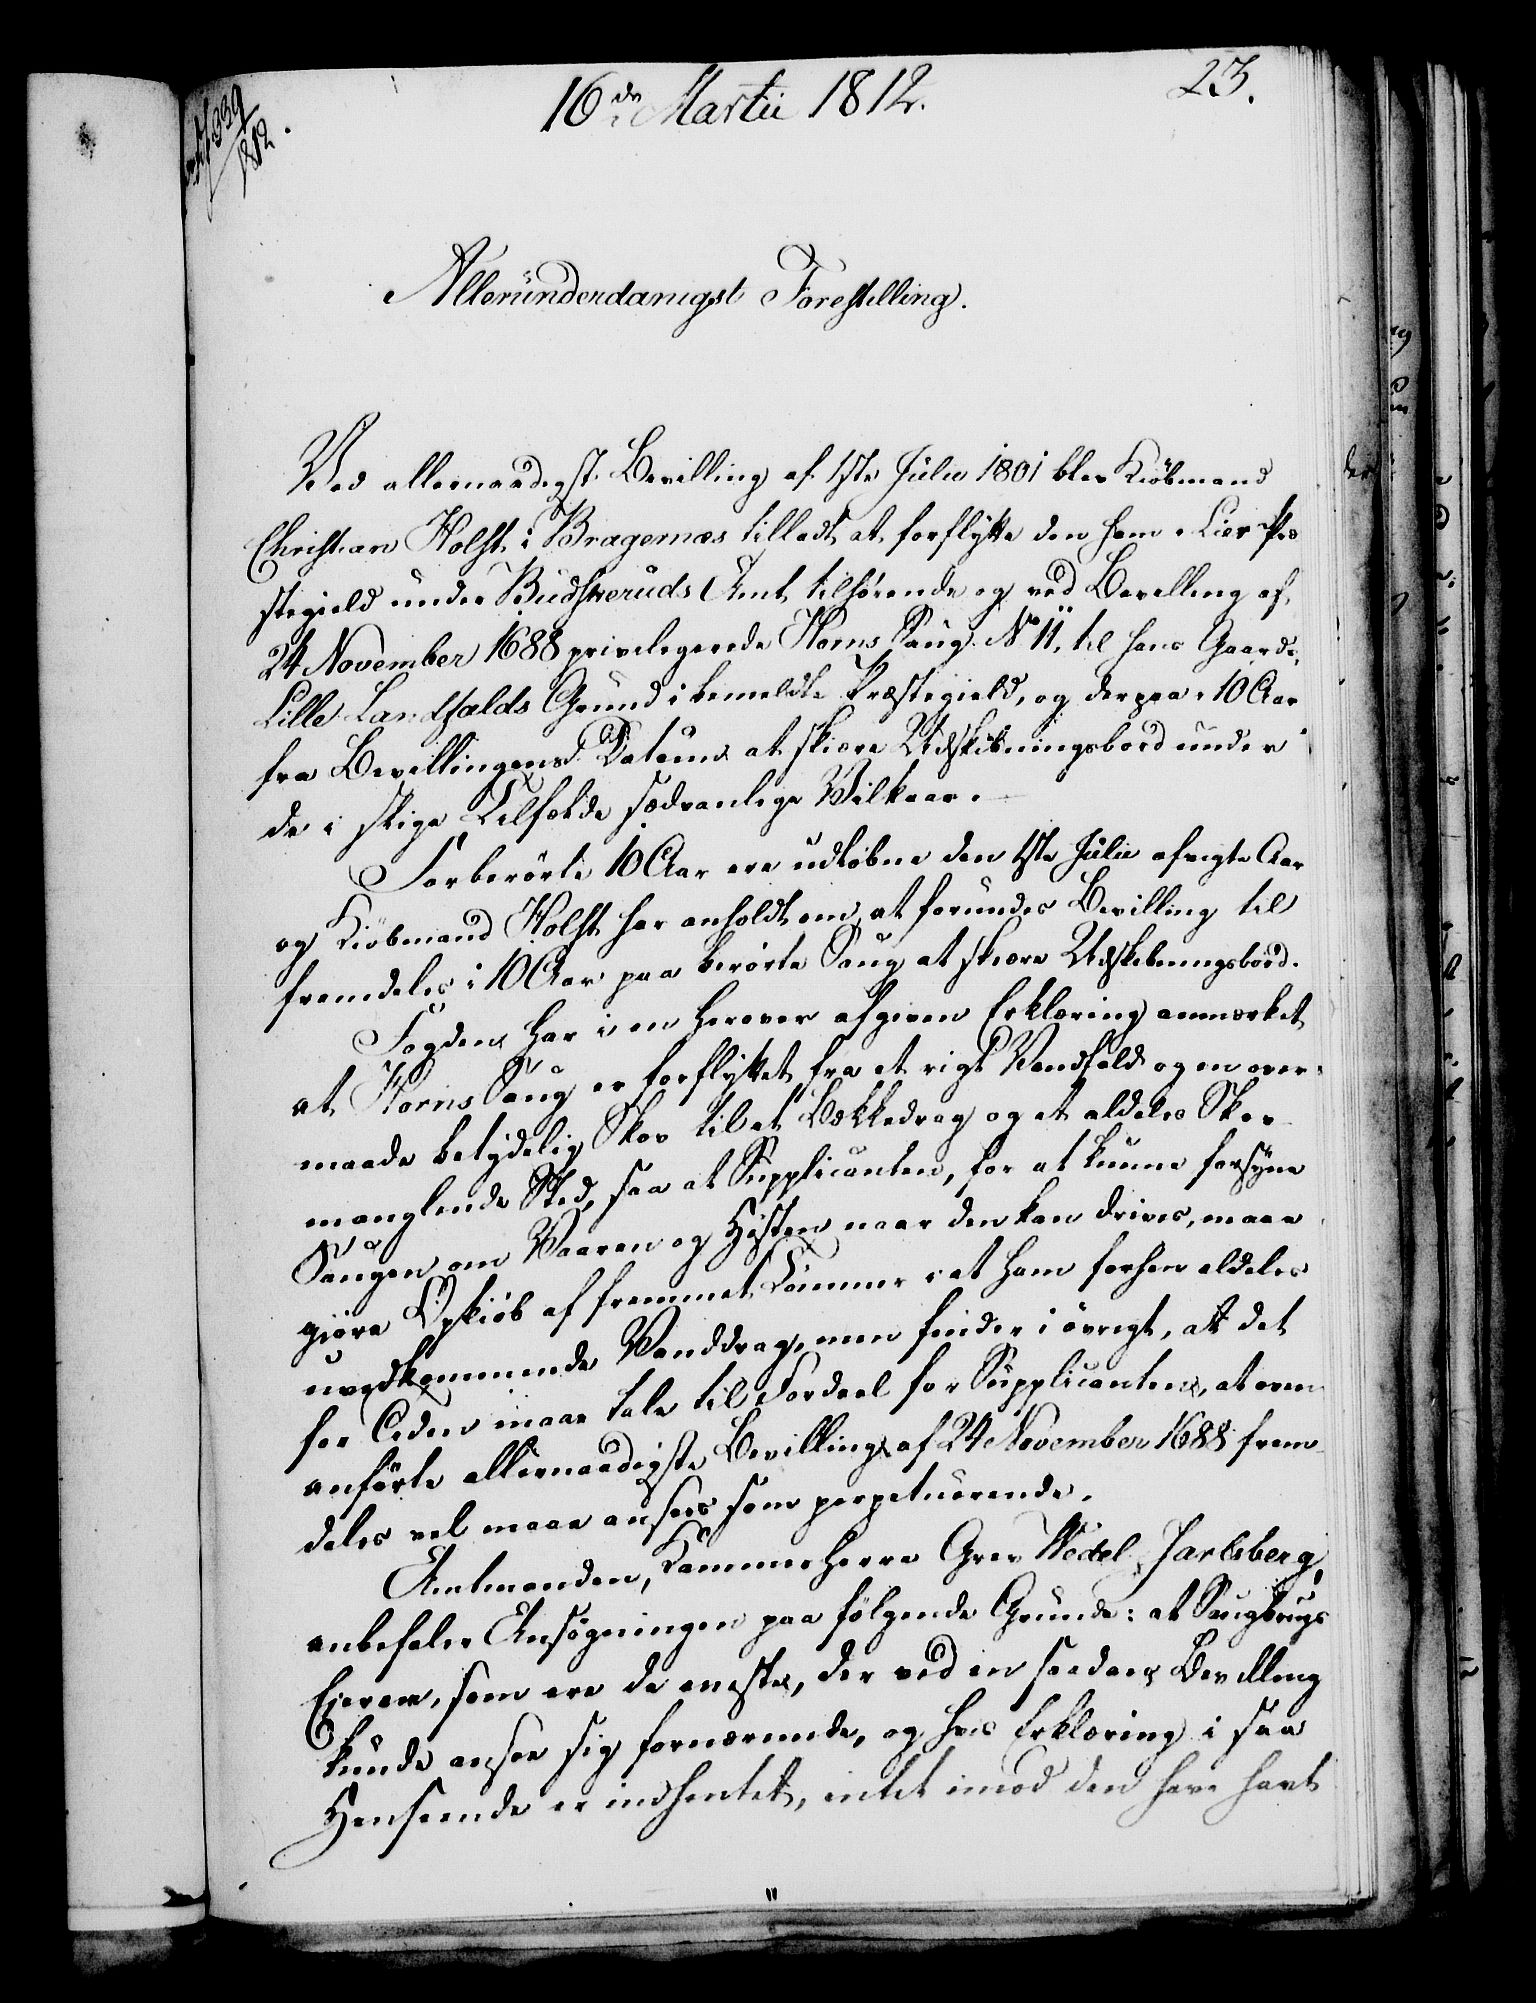 16de Martii 1812.
23.
339
1812.
Alleründerdanigst Forestilling.
Ved allernaadigst Bevilling af 1ste Julii 1801 blev Kiöbmand
Christian Holst i Bragernæs tilladt at forflytte den ham i Lier Præ
stegield under Budskeruds Amt tilhörende og ved Bevilling af
24 November 1688 privilegerede Horns Saug No 11, til hans Gaards,
Lille Landfalds Grund i bemeldte Præstegield, og derpaa i 10 Aar
fra Bevillingens Datum at skiære Udskibningsbord under
de i slige Tilfælde sædvanlige Vilkaar.
Forberörte 10 Aar ere udløbne den 1ste Julii afvigte Aar
og Kiöbmand Holst har anholdt om, at forundes Bevilling til
fremdeles i 10 Aar paa berörte Saug at skiære Udskibningsbord.
Fogden har i en herover afgiven Erklæring anmærket
at Horns Saug er forflyttet fra et rigt Vandfald og en over-
maade betydelig Skov til et Bækkedrag og et aldeles Skov
manglende Sted, saa at Supplicanten, for at kunne forsyne
Saugen om Vaaren og Hösten naar den kan drives, maae
giöre Opkiöb af fremmet Tömmer i et ham forhen aldeles
uvedkommende Vanddrag, men finder i övrigt, at det
for Tiden maae tale til Fordeel for Supplicanten, at oven
anförte allernaadigste Bevilling af 24 November 1688 frem
deles vel maae ansees som perpetuerende.
Amtmanden, Kammerherre Grev Wedel Jarlsberg,
anbefaler Ansøgningen paa fölgende Grunde: at Saugbrugs
Eierne, som ere de eneste, der ved en saadan Bevilling
kunde ansee sig fornærmede, og hvis Erklæring i saa
Henseende er indhentet, intet imod den have havt